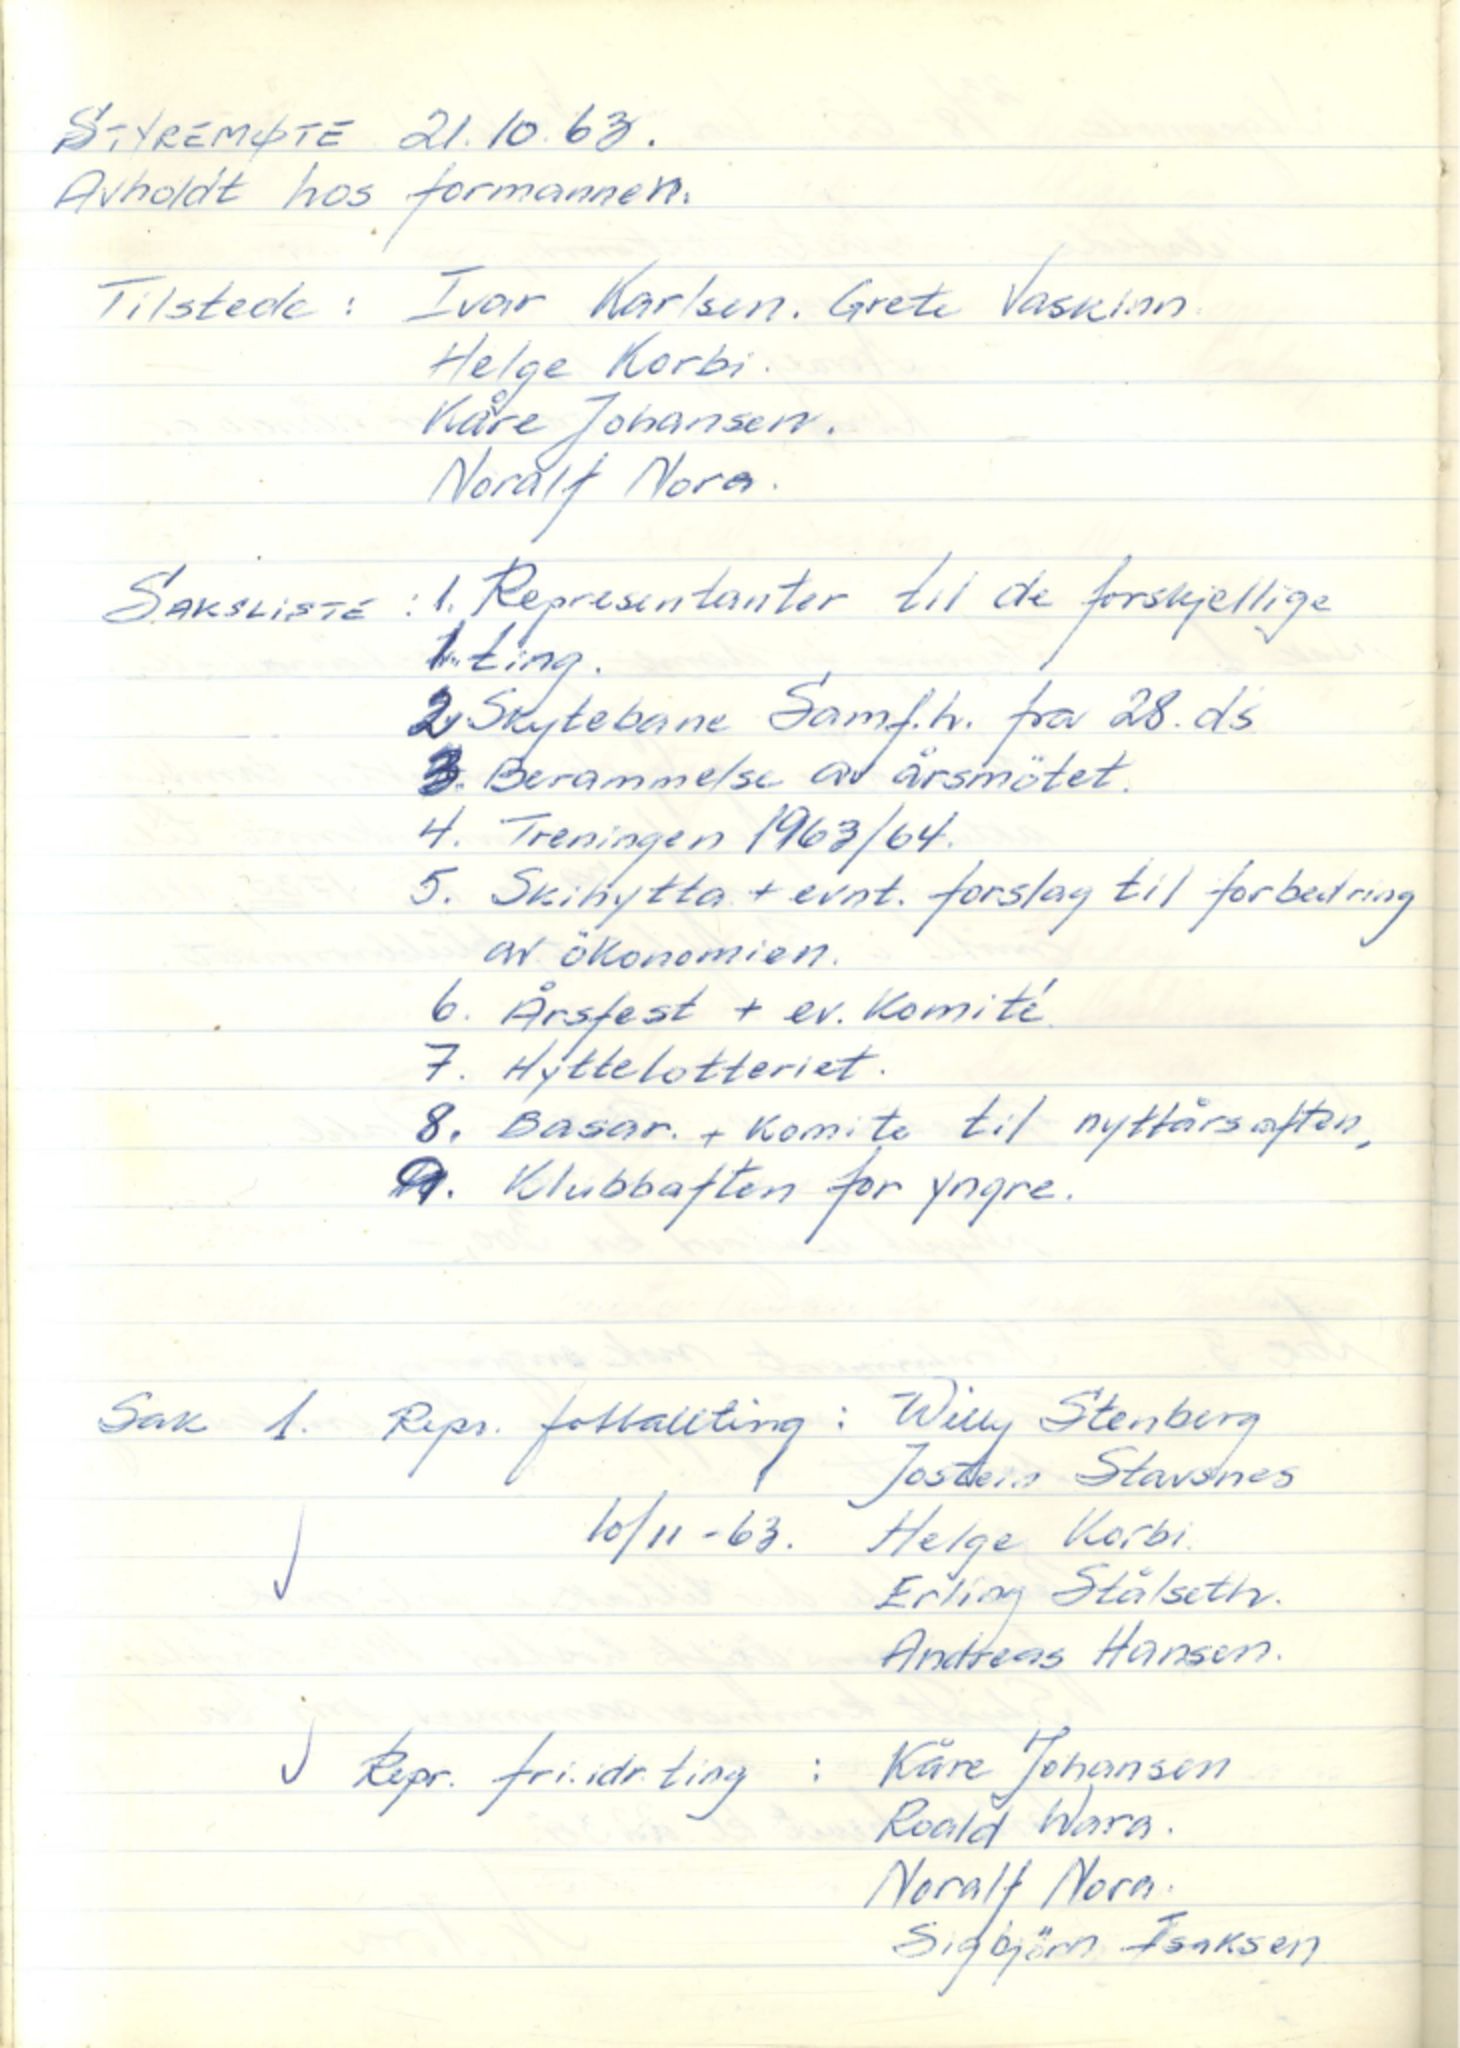 STYREMØTE 21.10.63.
Avholdt hos formannen.
Tilstede: Ivar Karlsen. Grete Vaskinn.
Helge Korbi.
Kåre Johansen.
Noralf Nora.
SAKSLISTE: 1. Representanter til de forskjellige
ting.
2. Skytebane Samf.h. fra 28. ds
3. Berammelse av årsmötet.
4. Treningen 1963/64.
5. Skihytta + evnt. forslag til forbedring
av ökonomien.
6. Årsfest + ev. Komité
7. Hyttelotteriet.
8. Basar. + Komite til nyttårsaften,
9. Klubbaften for yngre.
Sak 1. Repr. fotballting: Willy Stenberg
Jostein Stavsnes
10/11-63. Helge Korbi.
Erling Stålseth.
Andreas Hansen.
Repr. fri.idr.ting: Kåre Johansen
Roald Wara.
Noralf Nora.
Sigbjörn Isaksen